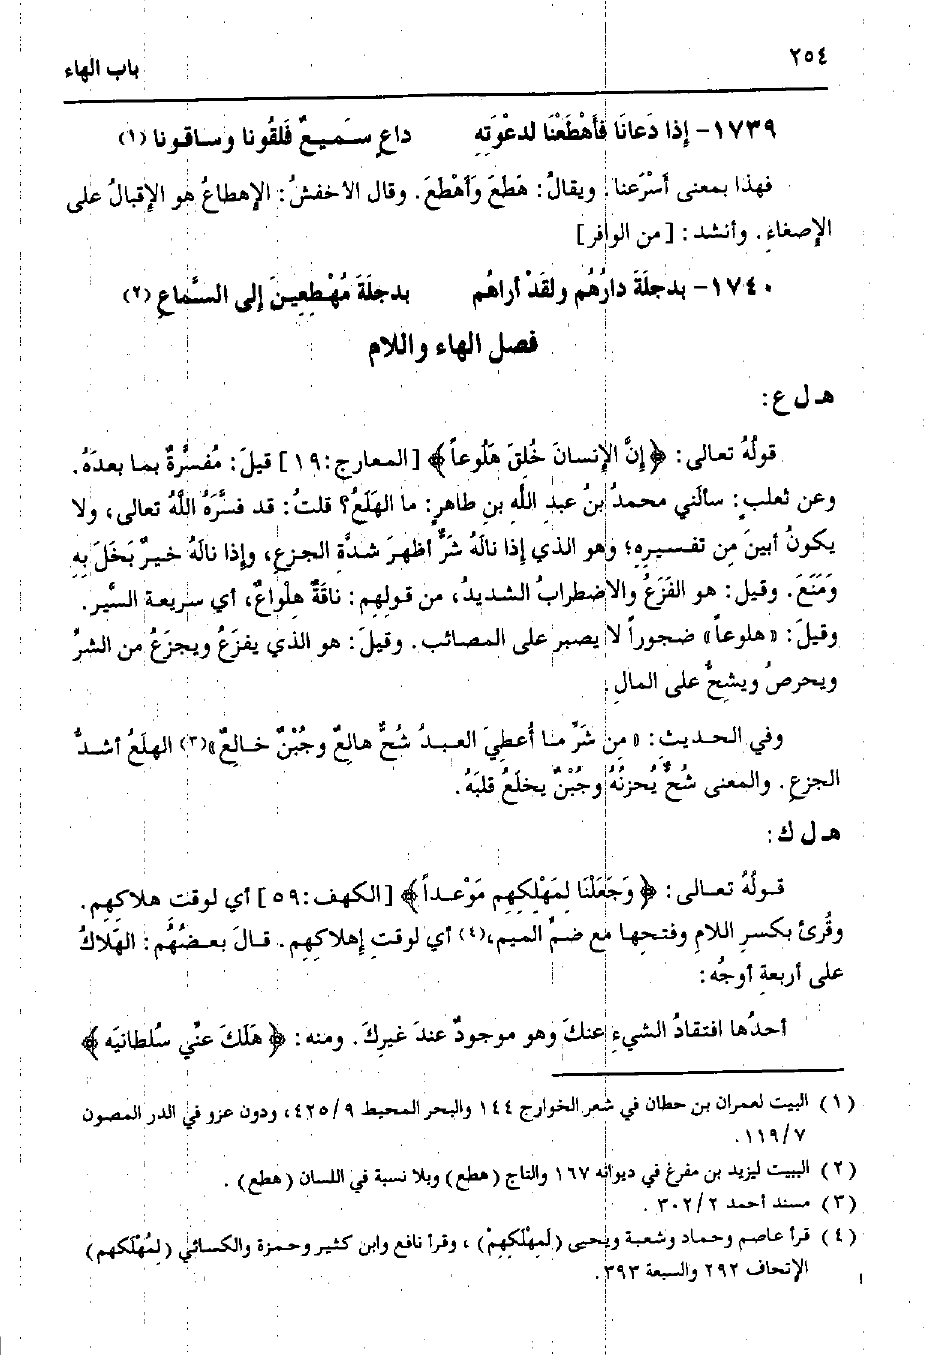 ٢٥٤
باب الهاء
١٧٣٩- إذا دَعانَا فأَهْطَعْنَا لدعْوَتِهِ داعٍ سَميعٌ فَلَقُونا وساقونا (١)
فهذا بمعنى أَسْرَعنا. ويقالُ: هَطَعَ وَأَهْطَعَ. وقال الأخفشُ: الإهطاعُ هو الإقبالُ على
الإصغاءِ. وأنشد: [من الوافر]
١٧٤٠- بدجلَةَ دارُهُم ولقَدْ أراهُم بدجلَةَ مُهْطِعِينَ إلى السَّماعِ (٢)
فصل الهاء واللام
هـ ل ع:
قولُهُ تعالى: ﴿إِنَّ الإِنسانَ خُلِقَ هَلُوعاً﴾ [المعارج:١٩] قيلَ: مُفسَّرةٌ بما بعدَهُ.
وعن ثعلبٍ: سألَني محمدُ بنُ عبدِ اللَّهِ بنِ طاهرٍ: ما الهَلَعُ؟ قلتُ: قد فسَّرَهُ اللَّهُ تعالى، ولا
يكونُ أبينَ مِن تفسيرِهِ؛ وهو الذي إذا نالَهُ شَرٌّ أظهرَ شدَّةَ الجزعِ، وإذا نالَهُ خيرٌ بَخَلَ بِهِ
وَمَنَعَ. وقيل: هو الفَزَعُ والاضطرابُ الشديدُ، من قولِهِم: ناقَةٌ هِلْواعٌ، أي سريعة السَّير.
وقيلَ: «هلوعاً» ضجوراً لا يصبر على المصائب. وقيلَ: هو الذي يفزَعُ ويجزَعُ من الشرِّ
ويحرصُ ويشِحُّ على المالِ.
وفي الحديث: «مِن شَرِّ ما أُعطِيَ العبدُ شُحٌّ هالعٌ وجُبْنٌ خالعٌ»(٣) الهلَعُ أشدُّ
الجزعِ. والمعنى شُحٌّ يُحزنُهُ وجُبْنٌ يخلَعُ قلبَهُ.
هـ ل ك:
قولُهُ تعالى: ﴿وَجَعَلْنَا لِمَهْلِكِهِم مَوْعداً﴾ [الكهف:٥٩] أي لوقت هلاكِهِم.
وقُرئ بكسرِ اللامِ وفتحِها مع ضمِّ الميم،(٤) أي لوقتِ إهلاكِهِم. قالَ بعضُهُم: الهَلَاكُ
على أربعةِ أوجُه:
أحدُها افتقادُ الشيءِ عنكَ وهو موجودٌ عندَ غيرِكَ. ومنه: ﴿هَلَكَ عنِّي سُلطانيَه﴾
(١) البيت لعمران بن حطان في شعر الخوارج ١٤٤ والبحر المحيط ٤٢٥/٩، ودون عزو في الدر المصون
١١٩/٧.
(٢) البيت ليزيد بن مفرغ في ديوانه ١٦٧ والتاج (هطع) وبلا نسبة في اللسان (هطع).
(٣) مسند أحمد ٣٠٢/٢.
(٤) قرأ عاصم وحماد وشعبة ويحيى (لَمِهْلَكِهِمْ)، وقرأ نافع وابن كثير وحمزة والكسائي (لِمُهْلَكهم)
الإتحاف ٢٩٢ والسبعة ٣٩٣.